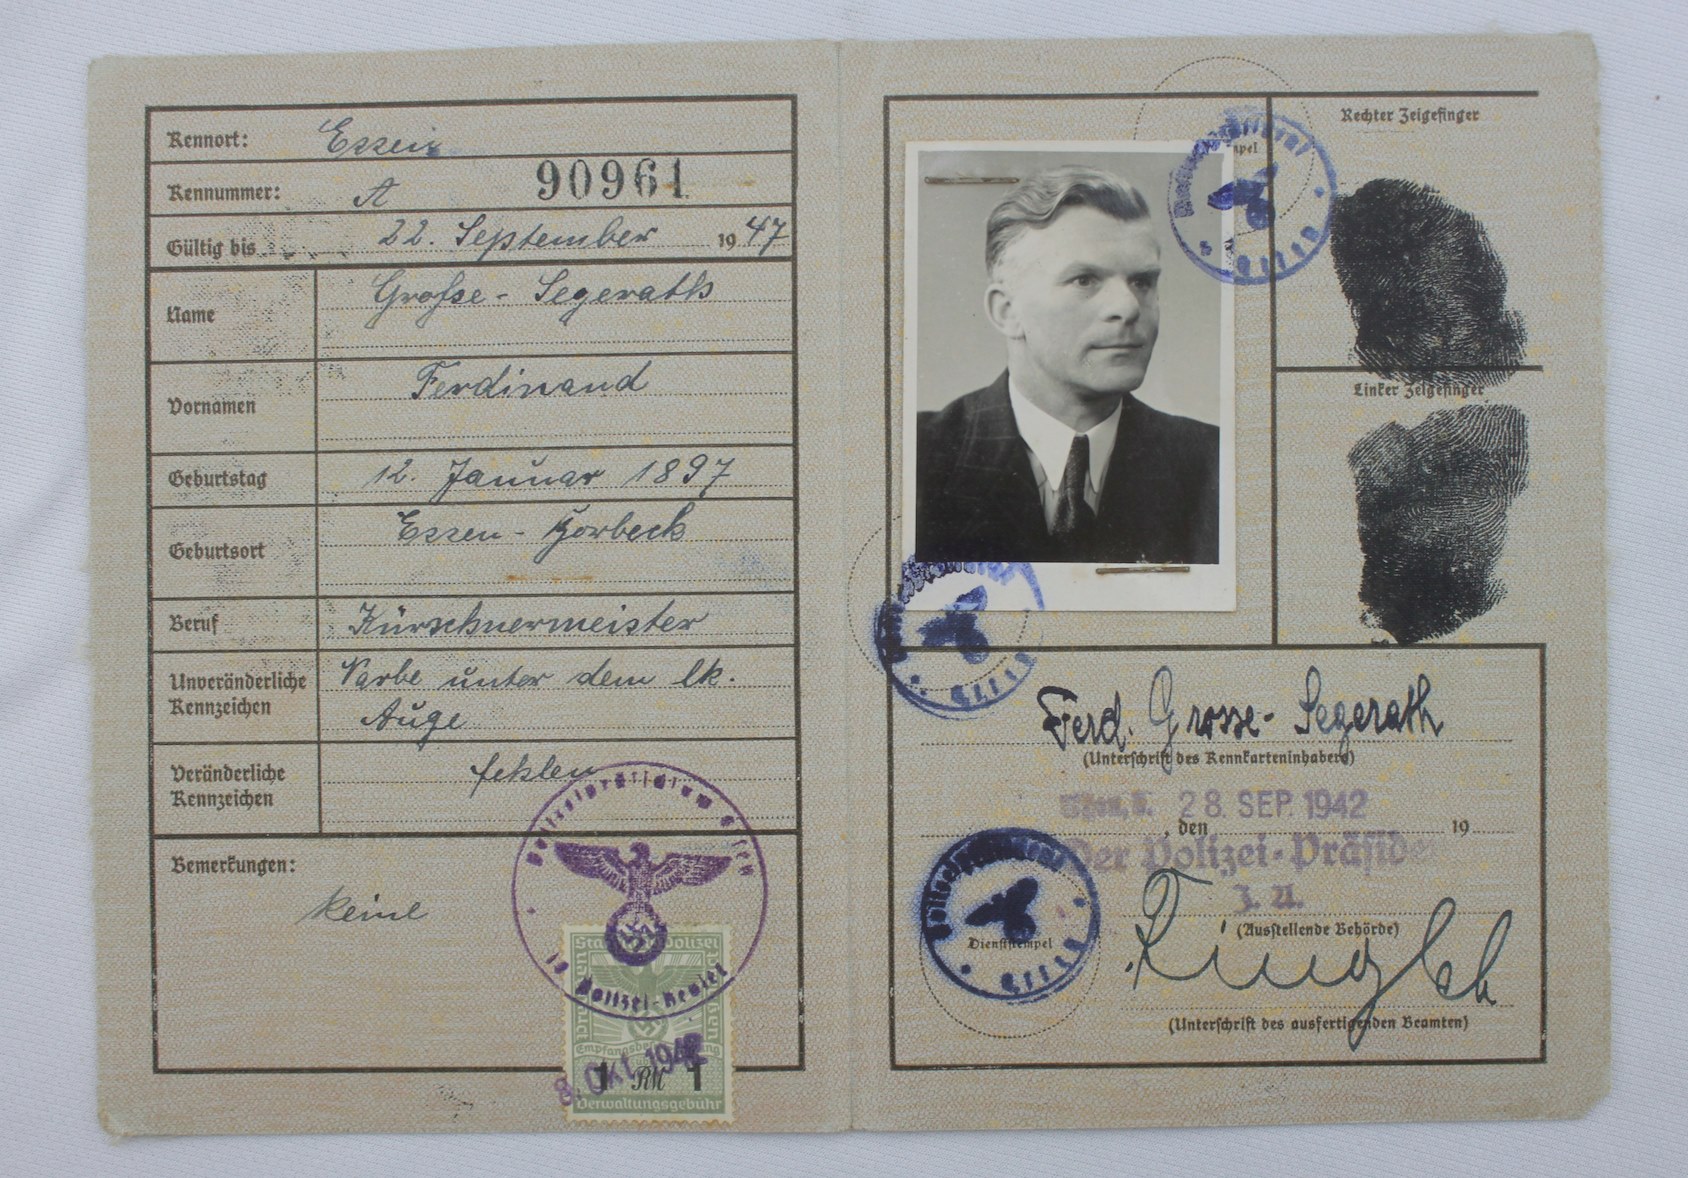 Kennort: Essen
Kennummer: A 90961
Gültig bis 22. September 1947
Name Große-Segerath
Vornamen Ferdinand
Geburtstag 12. Januar 1897
Geburtsort Essen-Horbeck
Beruf Kürschnermeister
Unveränderliche Kennzeichen Narbe unter dem lk.
Auge
Veränderliche Kennzeichen fehlen
Bemerkungen:
keine
Polizeipräsidium Essen
Polizei-Revier
Verwaltungsgebühr
8. Okt. 1942
1 RM 1
Rechter Zeigefinger
Linker Zeigefinger
Essen
Essen
Ferd. Grosse-Segerath
(Unterschrift des Kennkarteninhabers)
28. SEP. 1942
, den 19
Der Polizei-Präside
J. A.
Dienststempel
Essen
(Ausstellende Behörde)
(Unterschrift des ausfertigenden Beamten)